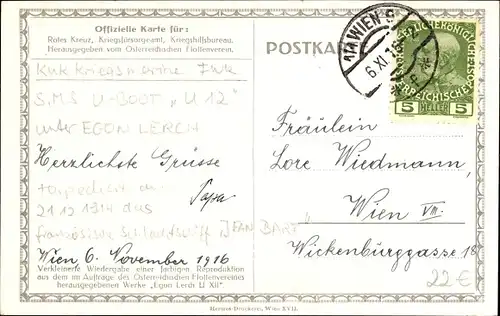 Offizielle Karte für:
Rotes Kreuz, Kriegsfürsorgeamt, Kriegshilfsbureau.
Herausgegeben vom Österreichischen Flottenverein.
POSTKARTE
1/1 WIEN 8
6.XI.16
5 5
HELLER
KuK Kriegsmarine
S.M.S U-BOOT "U 12"
unter EGON LERCH
Herzlichste Grüsse
torpediert am
Papa
21 12 1914 das
französische Schlachtschiff "JEAN BART"
Wien 6. November 1916
Fräulein
Lore Wiedmann
Wien VIII.
Wickenburggasse 18
22€
Verkleinerte Wiedergabe einer farbigen Reproduktion
aus dem im Auftrage des Österreichischen Flottenvereines
herausgegebenen Werke „Egon Lerch U XII“
Hermes-Druckerei, Wien XVII.